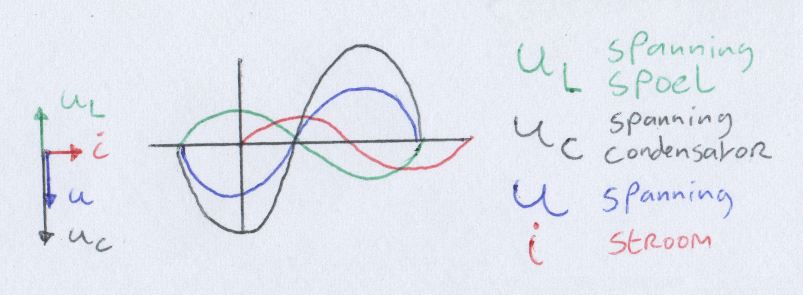 uL
i
u
uC
uL spanning
spoel
uC spanning
condensator
u spanning
i stroom